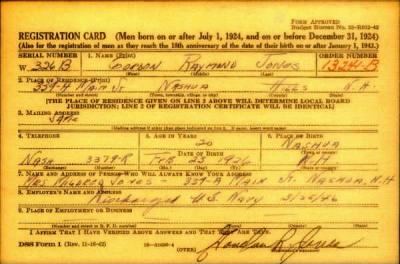 FORM APPROVED
Budget Bureau No. 33-R012-42
REGISTRATION CARD (Men born on or after July 1, 1924, and on or before December 31, 1924)
(Also for the registration of men as they reach the 18th anniversary of the date of their birth on or after January 1, 1943.)
SERIAL NUMBER 1. NAME (Print) ORDER NUMBER
W. 326B GORDON RAYMOND JONES 13241-B
(First) (Middle) (Last)
2. PLACE OF RESIDENCE (Print)
339-A MAIN ST NASHUA HILLS N.H.
(Number and street) (Town, township, village, or city) (County) (State)
[THE PLACE OF RESIDENCE GIVEN ON LINE 2 ABOVE WILL DETERMINE LOCAL BOARD
JURISDICTION; LINE 2 OF REGISTRATION CERTIFICATE WILL BE IDENTICAL]
3. MAILING ADDRESS
SAME
[Mailing address if other than place indicated on line 2. If same, insert word same]
4. TELEPHONE 5. AGE IN YEARS 6. PLACE OF BIRTH
20 NASHUA
DATE OF BIRTH
NASH 3379-R FEB 23 1926 N-H
(Exchange) (Number) (Mo.) (Day) (Yr.) (State or country)
7. NAME AND ADDRESS OF PERSON WHO WILL ALWAYS KNOW YOUR ADDRESS
MRS JONES - 339-A MAIN ST. NASHUA, N.H
8. EMPLOYER'S NAME AND ADDRESS
Discharged U.S. Navy 3/25/46
9. PLACE OF EMPLOYMENT OR BUSINESS
(Number and street or R. F. D. number) (Town) (County) (State)
I AFFIRM THAT I HAVE VERIFIED ABOVE ANSWERS AND THAT THEY ARE TRUE.
DSS Form 1 (Rev. 11-16-42) (OVER) Gordon R. Jones
(Registrant's signature)